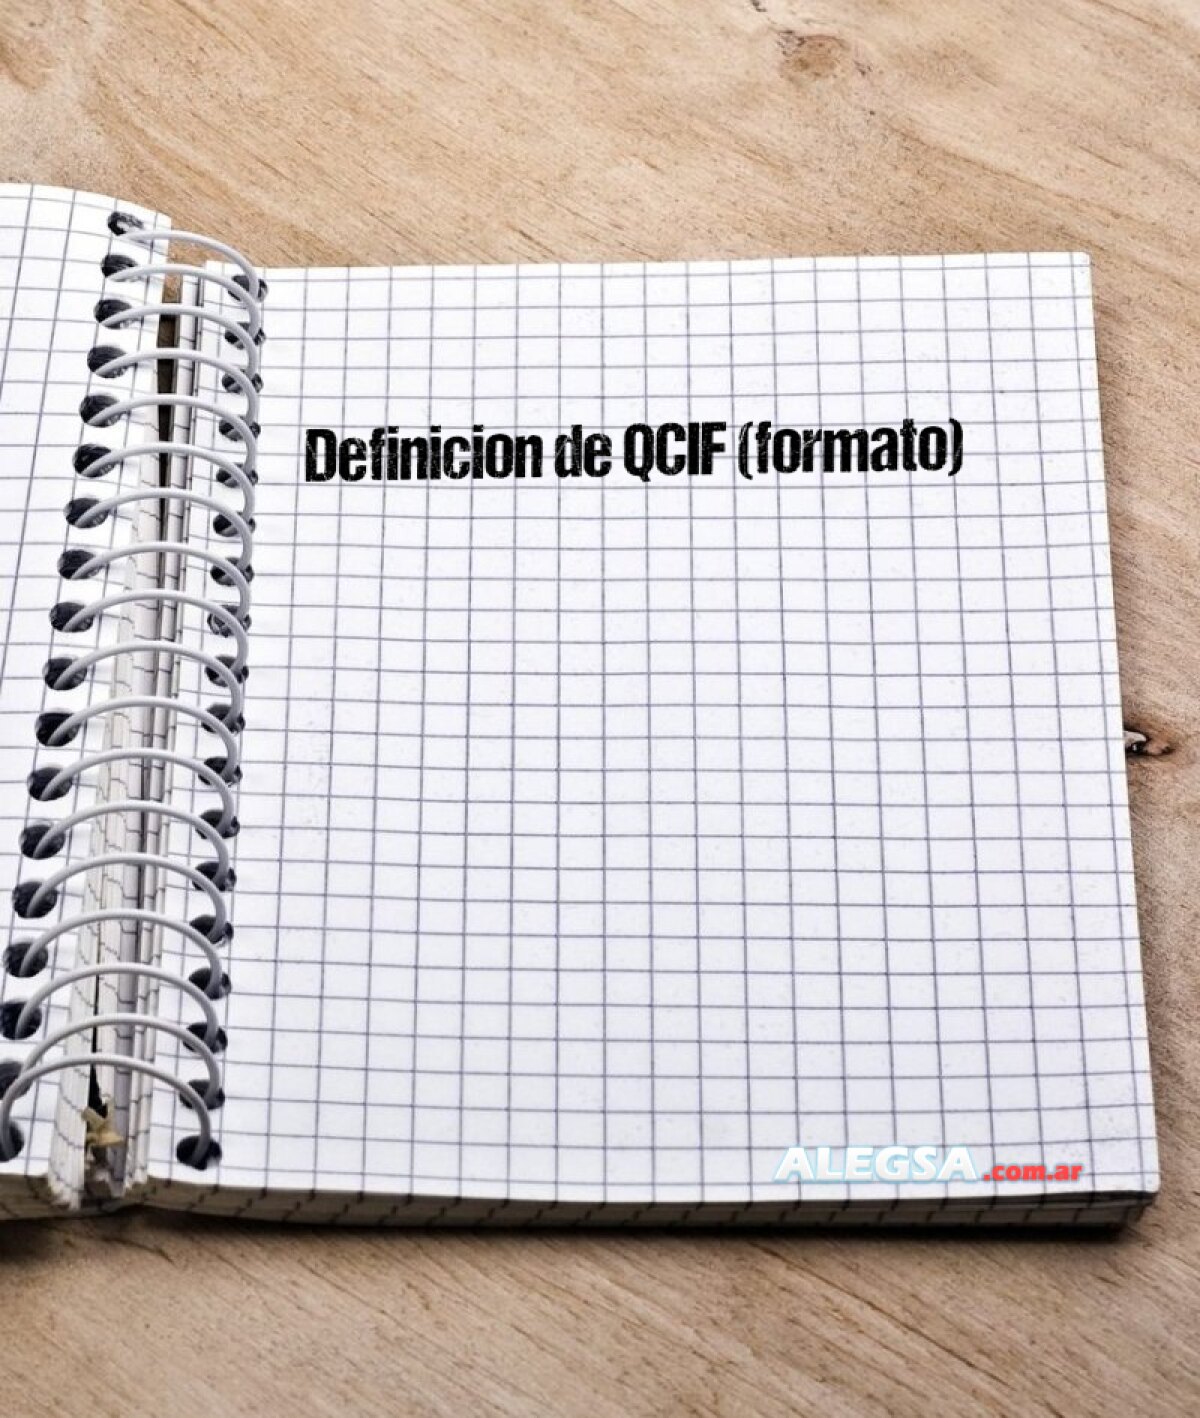 Definicion de QCIF (formato)
ALEGSA.com.ar